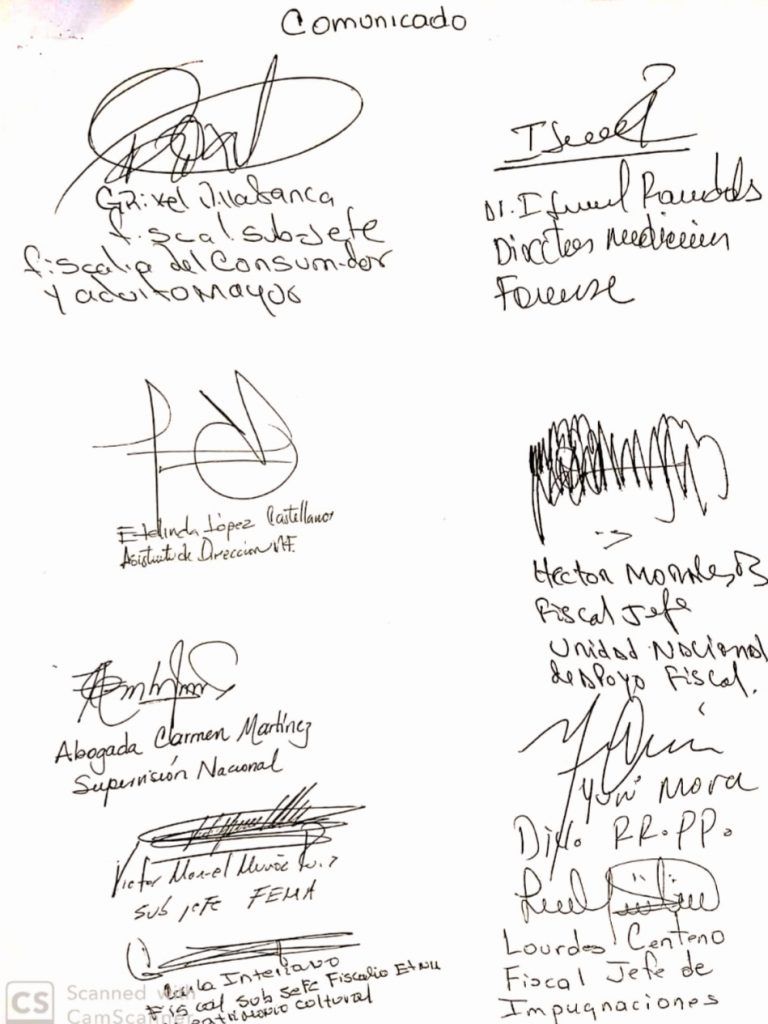 Comunicado
Grixel Villafranca
fiscal sub-Jefe
fiscalia del Consumidor
y adulto Mayor
Ismael
Dr. Ismael Raudales
Director medicina
Forense
Etelinda López Castellanos
Asistente de Direccion MF.
Hector Morales B
Fiscal Jefe
Unidad Nacional
de apoyo Fiscal.
Abogada Carmen Martínez
Supervisión Nacional
Yuri Mora
RR.PP.
Victor Manuel Muñoz
sub jefe FEMA
Lourdes Centeno
Fiscal Jefe de
Impugnaciones
Interiano
Fiscal sub jefe Fiscalia
Patrimonio cultural
CS Scanned with
CamScanner